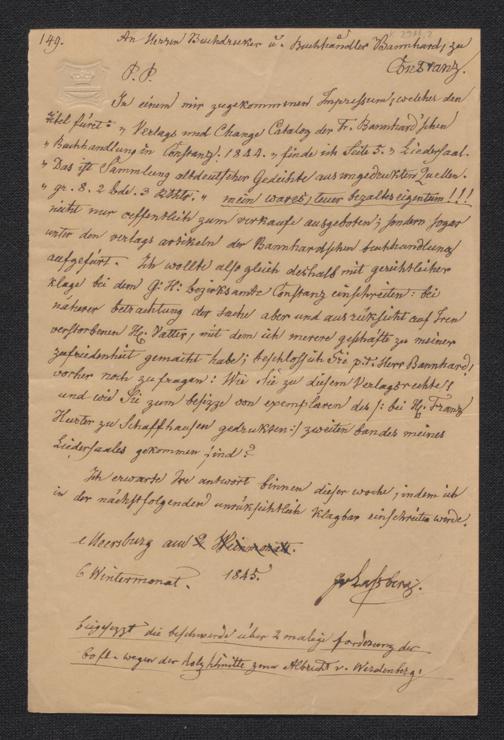 149. An Herrn Buchdruker u. Buchhändler Bannhard, zu
Constanz.
P. P.
In einem mir zugekommenen Impressum, welcher den
titel füret: „ Verlags und Change Catalog der Fr. Bannhard'schen
„ Buchhandlung in Constanz. 1844. „ finde ich Seite 5. „ Liedersaal.
„ Das ist Sammlung altdeutscher Gedichte aus ungedrukten Quellen.
„ gr. 8. 2 bde. 3 rthlr. „ mein wares, teuer bezaltes eigentum!!!
nicht nur oeffentlich zum verkaufe ausgeboten; sondern sogar
unter den verlags artikeln der Bannhardschen buchhandlung
aufgefürt. Ich wollte also gleich deshalb mit gerichtlicher
klage bei dem G: H: bezirksamte Constanz einschreiten: bei
näherer betrachtung der sache aber und aus rüksicht auf Iren
verstorbenen H: Vatter, mit dem ich merere geschäfte zu meiner
zufriedenheit gemacht habe; beschloss ich Sie p.t: Herr Bannhard!
vorher noch zu fragen: Wie Sie zu diesem Verlagsrechte?
und wie Sie zum besizze von exemplaren des /: bei H: Franz
Hurter zu Schaffhausen gedrukten :/ zweiten bandes meines
Liedersaales gekommen sind?
Ich erwarte Ire antwort binnen dieser woche, indem ich
in der nächstfolgenden unrüksichtlich klagbar einschreiten werde.
Meersburg am 2 Weinmonat.
6 Wintermonat. 1845.
JvLaßberg.
beigesezt die beschwerde über 2 malige forderung der
wegen der holzschnitte zum Albrecht v. Werdenberg.